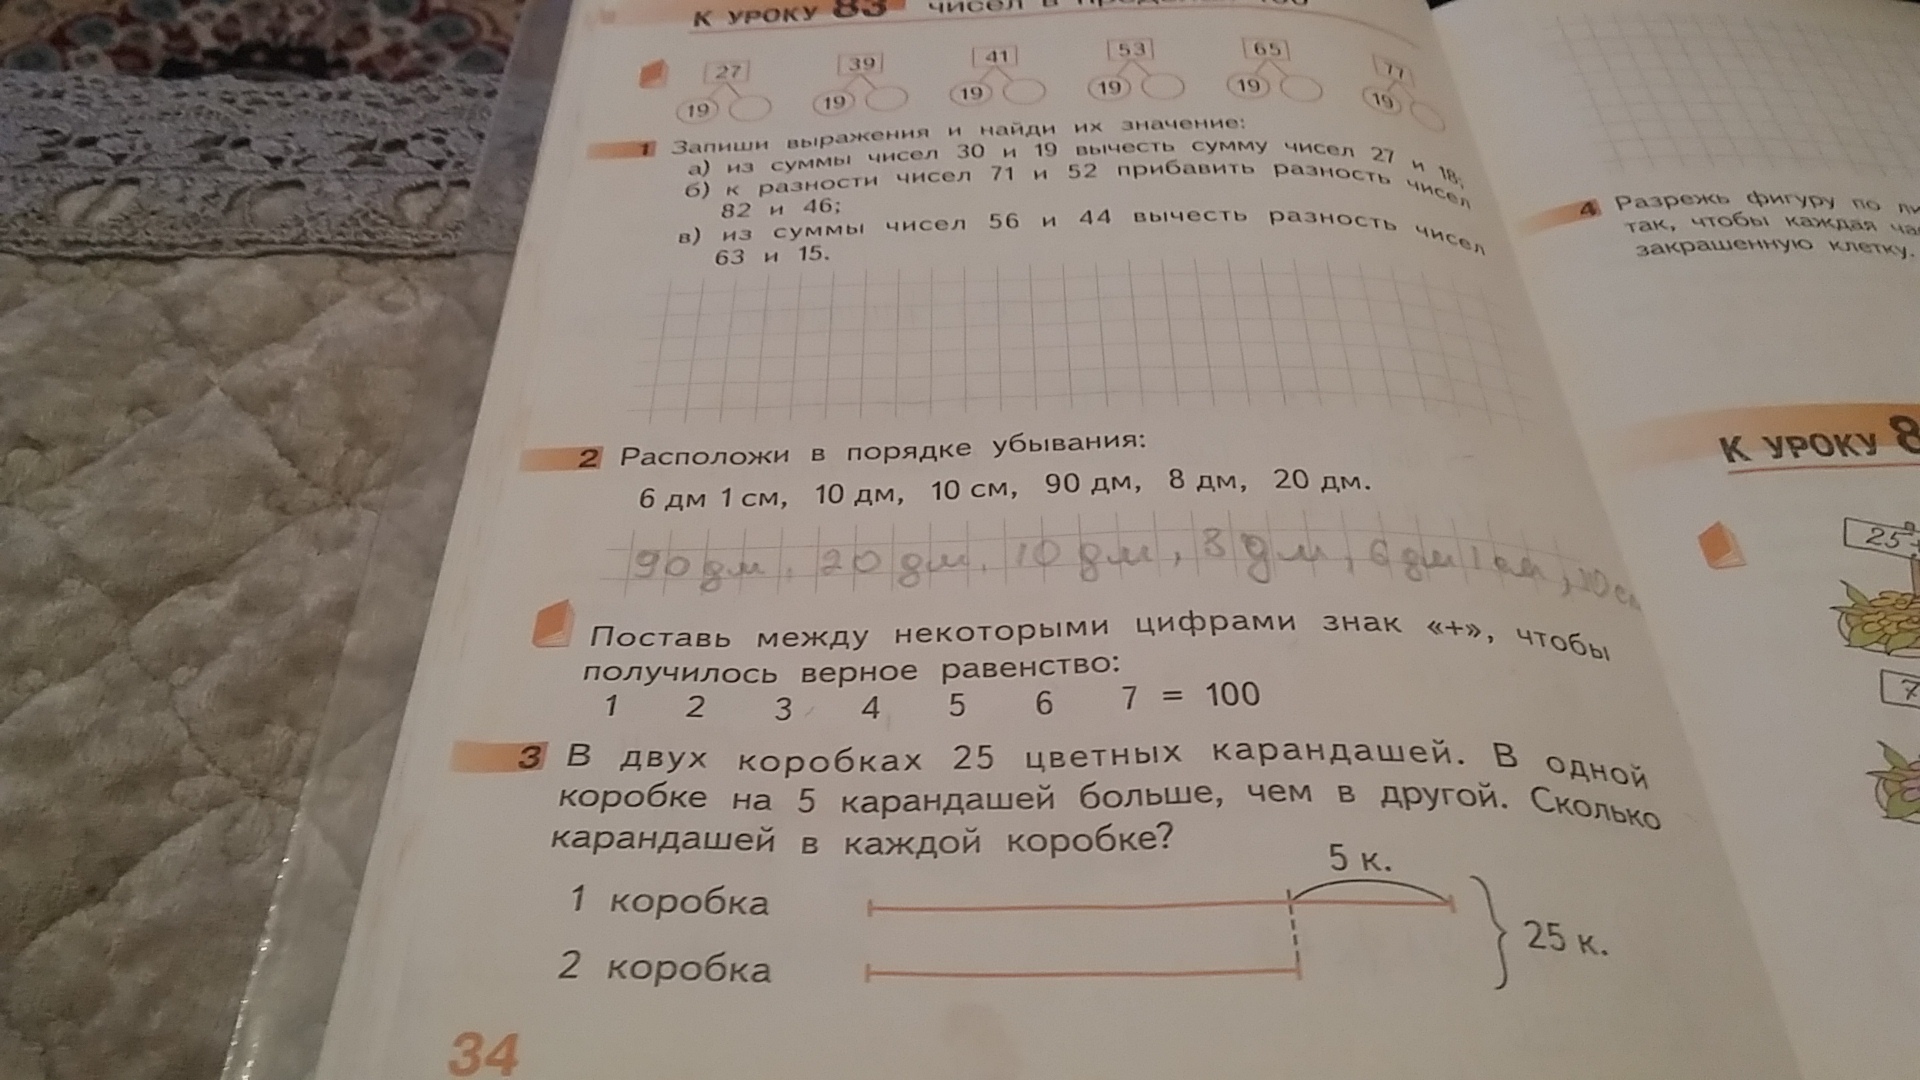 К УРОКУ 83 чисел в
27 39 41 53 65 77
19 19 19 19 19 19
1 Запиши выражения и найди их значение:
а) из суммы чисел 30 и 19 вычесть сумму чисел 27 и 18;
б) к разности чисел 71 и 52 прибавить разность чисел
82 и 46;
в) из суммы чисел 56 и 44 вычесть разность чисел
63 и 15.
2 Расположи в порядке убывания:
6 дм 1 см, 10 дм, 10 см, 90 дм, 8 дм, 20 дм.
90 дм, 20 дм, 10 дм, 8 дм, 6 дм 1 см, 10 см
Поставь между некоторыми цифрами знак «+», чтобы
получилось верное равенство:
1 2 3 4 5 6 7 = 100
3 В двух коробках 25 цветных карандашей. В одной
коробке на 5 карандашей больше, чем в другой. Сколько
карандашей в каждой коробке?
5 к.
1 коробка
25 к.
2 коробка
34
4 Разрежь фигуру по
так, чтобы каждая
закрашенную клетку.
К УРОКУ 8
25
7